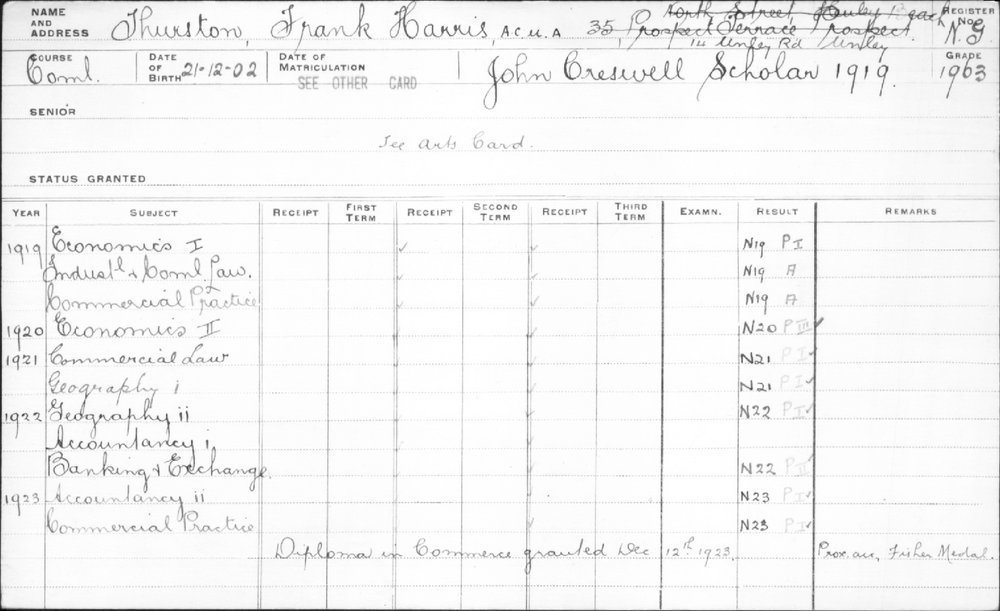 NAME AND ADDRESS Thurston, Frank Harris, A.C.U.A 35, North Street, Henley Beach REGISTER No. N.G
Prospect Terrace Prospect
14 Unley Rd Unley
COURSE Coml. DATE OF BIRTH 21-12-02 DATE OF MATRICULATION SEE OTHER CARD John Creswell Scholar 1919. GRADE 1963
SENIOR
See Arts Card.
STATUS GRANTED
YEAR SUBJECT RECEIPT FIRST TERM RECEIPT SECOND TERM RECEIPT THIRD TERM EXAMN. RESULT REMARKS
1919 Economics I ✓ ✓ N19 P I
Indust'l & Coml. Law. ✓ ✓ N19 A
Commercial Practice ✓ ✓ N19 A
1920 Economics II ✓ ✓ N20 P III ✓
1921 Commercial Law ✓ ✓ N21 P I ✓
Geography i ✓ ✓ N21 P I ✓
1922 Geography ii ✓ ✓ N22 P I ✓
Accountancy i ✓ ✓
Banking & Exchange. ✓ ✓ N22 P II ✓
1923 Accountancy ii ✓ ✓ N23 P I ✓
Commercial Practice ✓ N23 P I ✓
Diploma in Commerce granted Dec 12th 1923. Prox. acc. Fisher Medal.